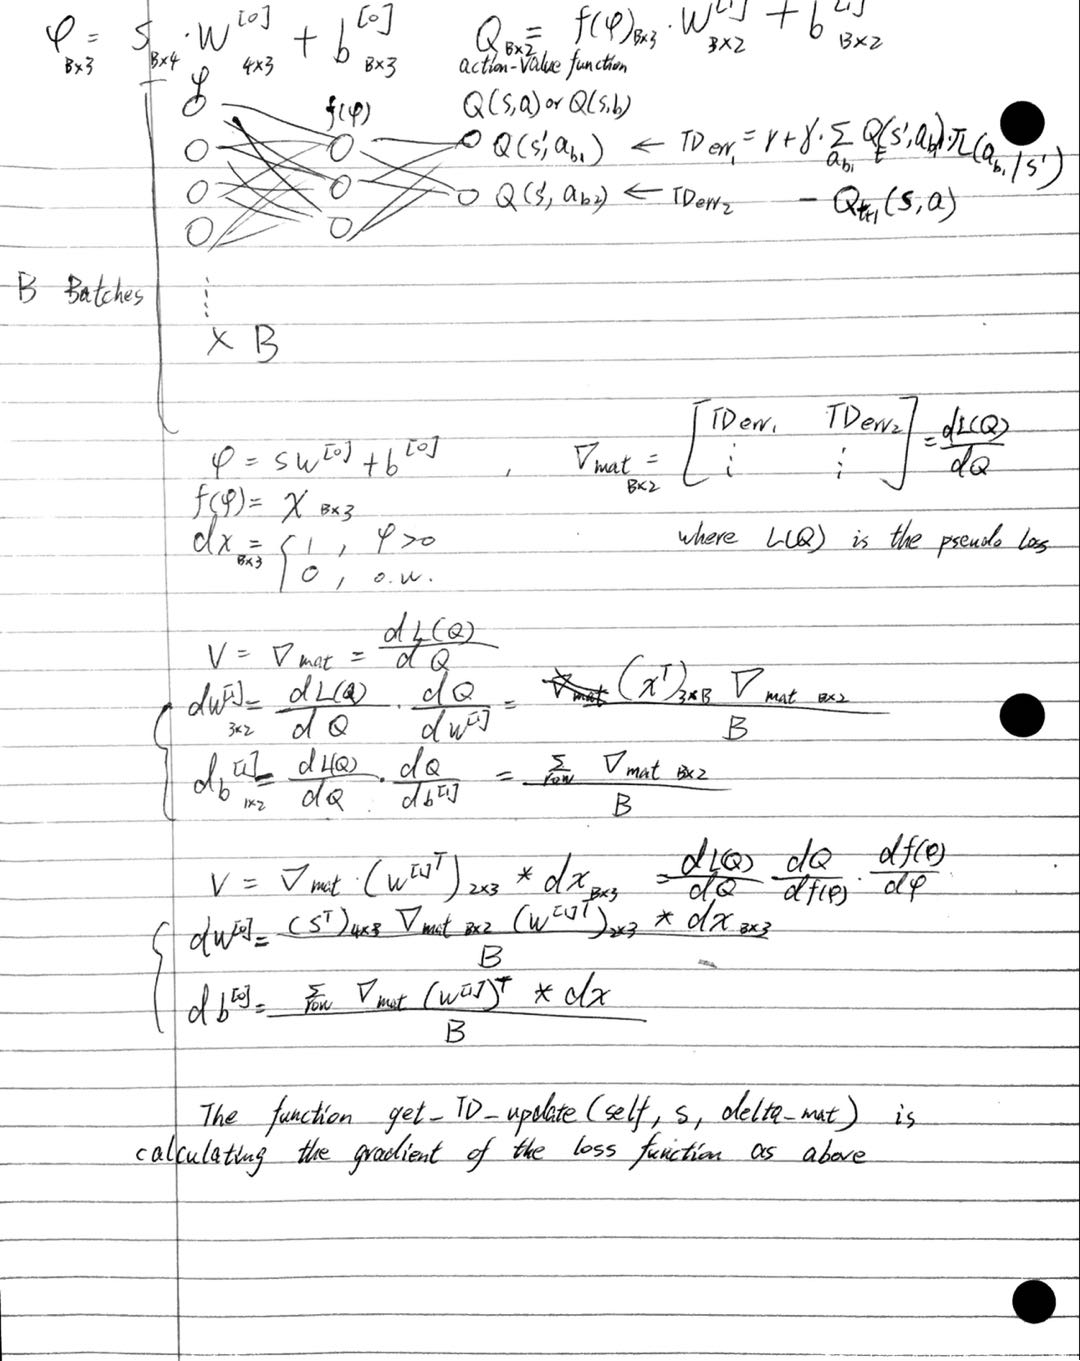 φ_{B×3} = S_{B×4} · W^{[0]}_{4×3} + b^{[0]}_{B×3}    Q_{B×2} = f(φ)_{B×3} · W^{[1]}_{3×2} + b^{[1]}_{B×2}
action-value function
φ    f(φ)    Q(s,a) or Q(s,b)
Q(s',a_{b1}) ← TDerr_1 = r + γ · Σ_{a_{b1}} Q_t(s',a_{b1}) · π(a_{b1}/s')
Q(s',a_{b2}) ← TDerr_2    − Q_{t+1}(s,a)
B Batches
× B
φ = sw^{[0]} + b^{[0]} ,    ∇mat_{B×2} = [TDerr_1 TDerr_2 ⋮ ⋮] = dL(Q)/dQ
f(φ) = x_{B×3}
dx_{B×3} = { 1, φ>0    where L(Q) is the pseudo loss
0, o.w.
V = ∇mat = dL(Q)/dQ
dw^{[1]}_{3×2} = dL(Q)/dQ · dQ/dw^{[1]} = (x^T)_{3×B} ∇mat_{B×2} / B
db^{[1]}_{1×2} = dL(Q)/dQ · dQ/db^{[1]} = Σ_{row} ∇mat_{B×2} / B
V = ∇mat · (w^{[1]T})_{2×3} * dx_{B×3} = dL(Q)/dQ · dQ/df(φ) · df(φ)/dφ
dw^{[0]} = (S^T)_{4×B} ∇mat_{B×2} (w^{[1]T})_{2×3} * dx_{B×3} / B
db^{[0]} = Σ_{row} ∇mat (w^{[1]})^T * dx / B
The function get_TD_update(self, s, delta_mat) is
calculating the gradient of the loss function as above